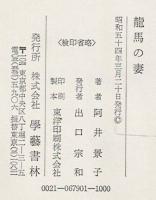 龍馬の妻
昭和五十四年三月二十日発行©
〈検印省略〉
著者 阿井景子
発行者 出口宗和
印刷製本 印刷株式会社
発行所 株式会社 學藝書林
〒104 東京都中央区八丁堀二―三―五
振替東京
0021-067901-1000